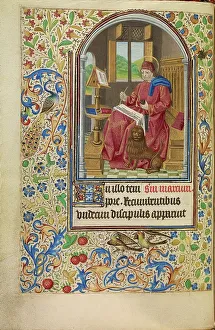 In illo tem Sm marcum
pre. Recumbentibus
undecim discipulis apparuit